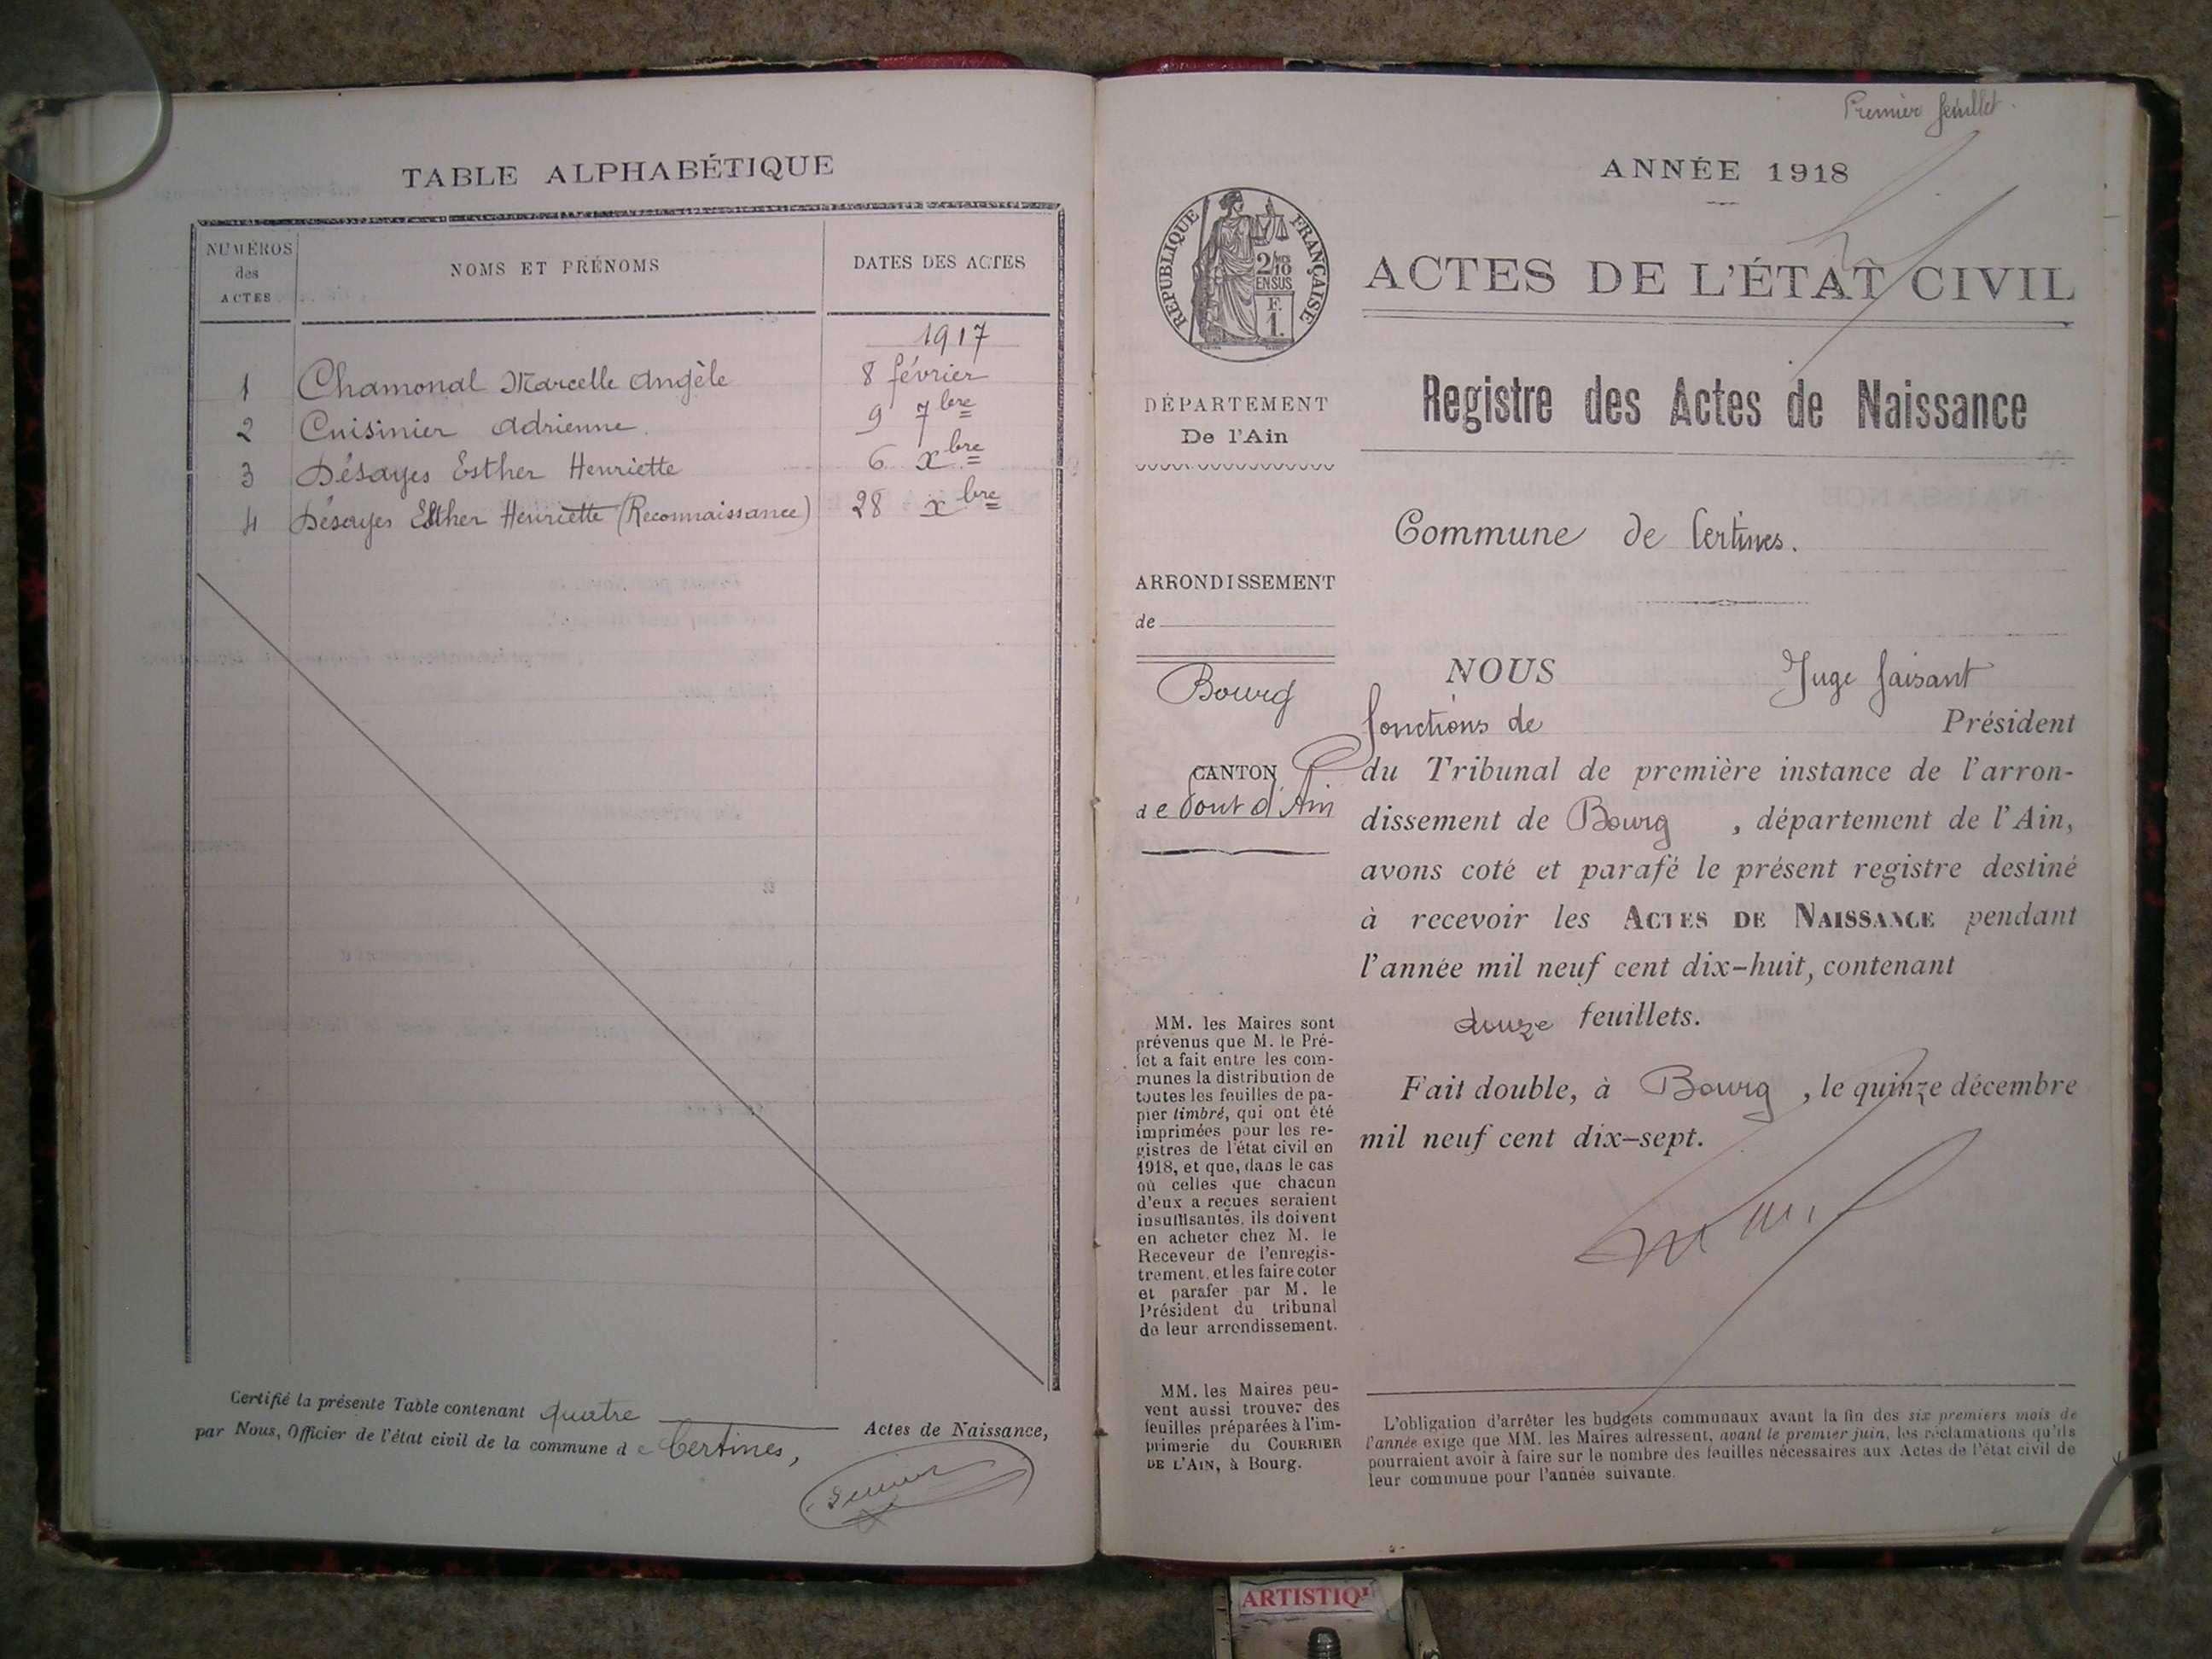 TABLE ALPHABÉTIQUE
NUMÉROS
des
ACTES
NOMS ET PRÉNOMS
DATES DES ACTES
1917
1 Chamonal Marcelle Angèle 8 février
2 Cuisinier Adrienne 9 7bre
3 Désayes Esther Henriette 6 xbre
4 Désayes Esther Henriette (Reconnaissance) 28 xbre
Certifié la présente Table contenant quatre Actes de Naissance,
par Nous, Officier de l'état civil de la commune de Certines,
Premier feuillet.
ANNÉE 1918
RÉPUBLIQUE FRANÇAISE
2/10
EN SUS
F.
1.
ACTES DE L'ÉTAT CIVIL
Registre des Actes de Naissance
DÉPARTEMENT
De l'Ain
Commune de Certines.
ARRONDISSEMENT
de
Bourg
CANTON
de Pont d'Ain
NOUS Juge faisant
fonctions de Président
du Tribunal de première instance de l'arron-
dissement de Bourg , département de l'Ain,
avons coté et parafé le présent registre destiné
à recevoir les ACTES DE NAISSANCE pendant
l'année mil neuf cent dix-huit, contenant
douze feuillets.
Fait double, à Bourg , le quinze décembre
mil neuf cent dix-sept.
MM. les Maires sont
prévenus que M. le Pré-
fet a fait entre les com-
munes la distribution de
toutes les feuilles de pa-
pier timbré, qui ont été
imprimées pour les re-
gistres de l'état civil en
1918, et que, dans le cas
où celles que chacun
d'eux a reçues seraient
insuffisantes, ils doivent
en acheter chez M. le
Receveur de l'enregis-
trement, et les faire coter
et parafer par M. le
Président du tribunal
de leur arrondissement.
MM. les Maires peu-
vent aussi trouver des
feuilles préparées à l'im-
primerie du COURRIER
DE L'AIN, à Bourg.
L'obligation d'arrêter les budgets communaux avant la fin des six premiers mois de
l'année exige que MM. les Maires adressent, avant le premier juin, les réclamations qu'ils
pourraient avoir à faire sur le nombre des feuilles nécessaires aux Actes de l'état civil de
leur commune pour l'année suivante.
ARTISTIQ